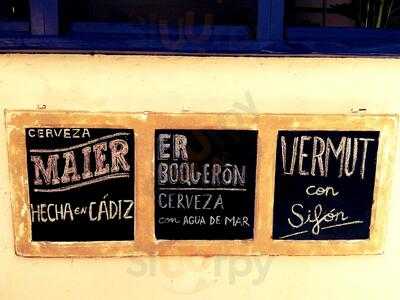 CERVEZA
MAIER
HECHA EN CÁDIZ
ER
BOQUERÓN
CERVEZA
con AGUA DE MAR
VERMUT
con
Sifón